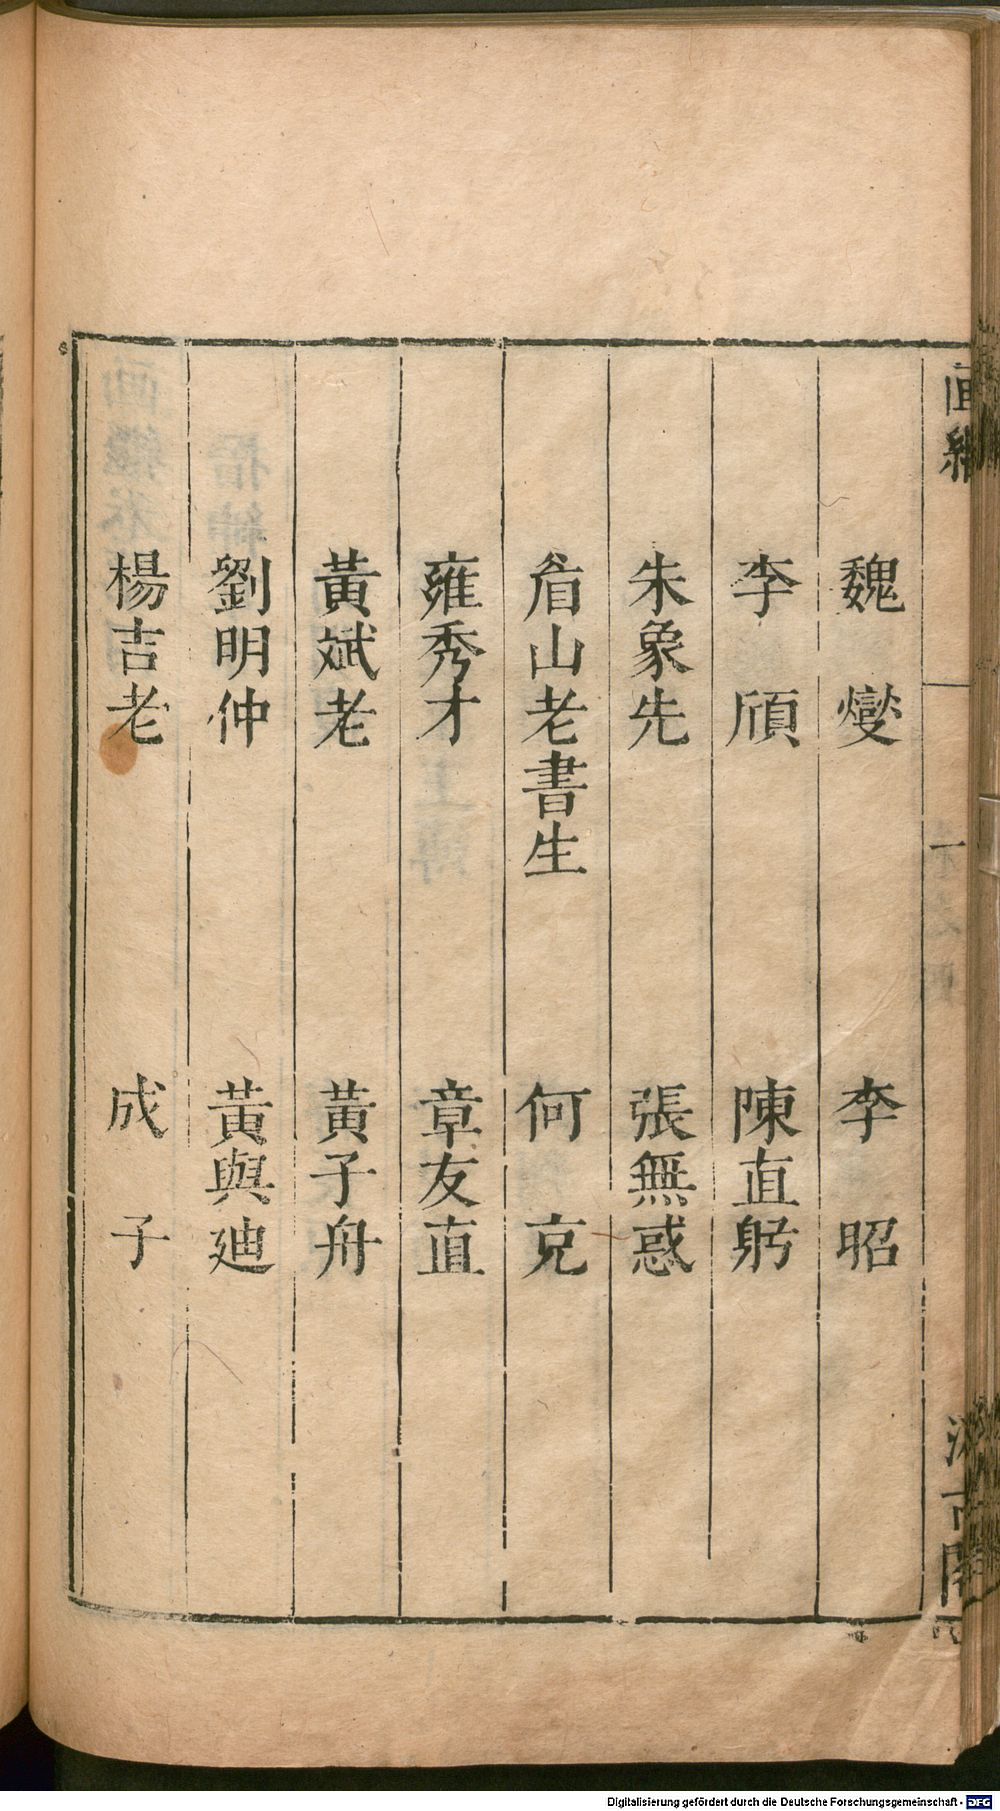 魏　燮　李　昭
李　頎　陳直躬
朱象先　張無惑
眉山老書生　何　克
雍秀才　章友直
黃斌老　黃子舟
劉明仲　黃與迪
楊吉老　成　子
Digitalisierung gefördert durch die Deutsche Forschungsgemeinschaft - DFG